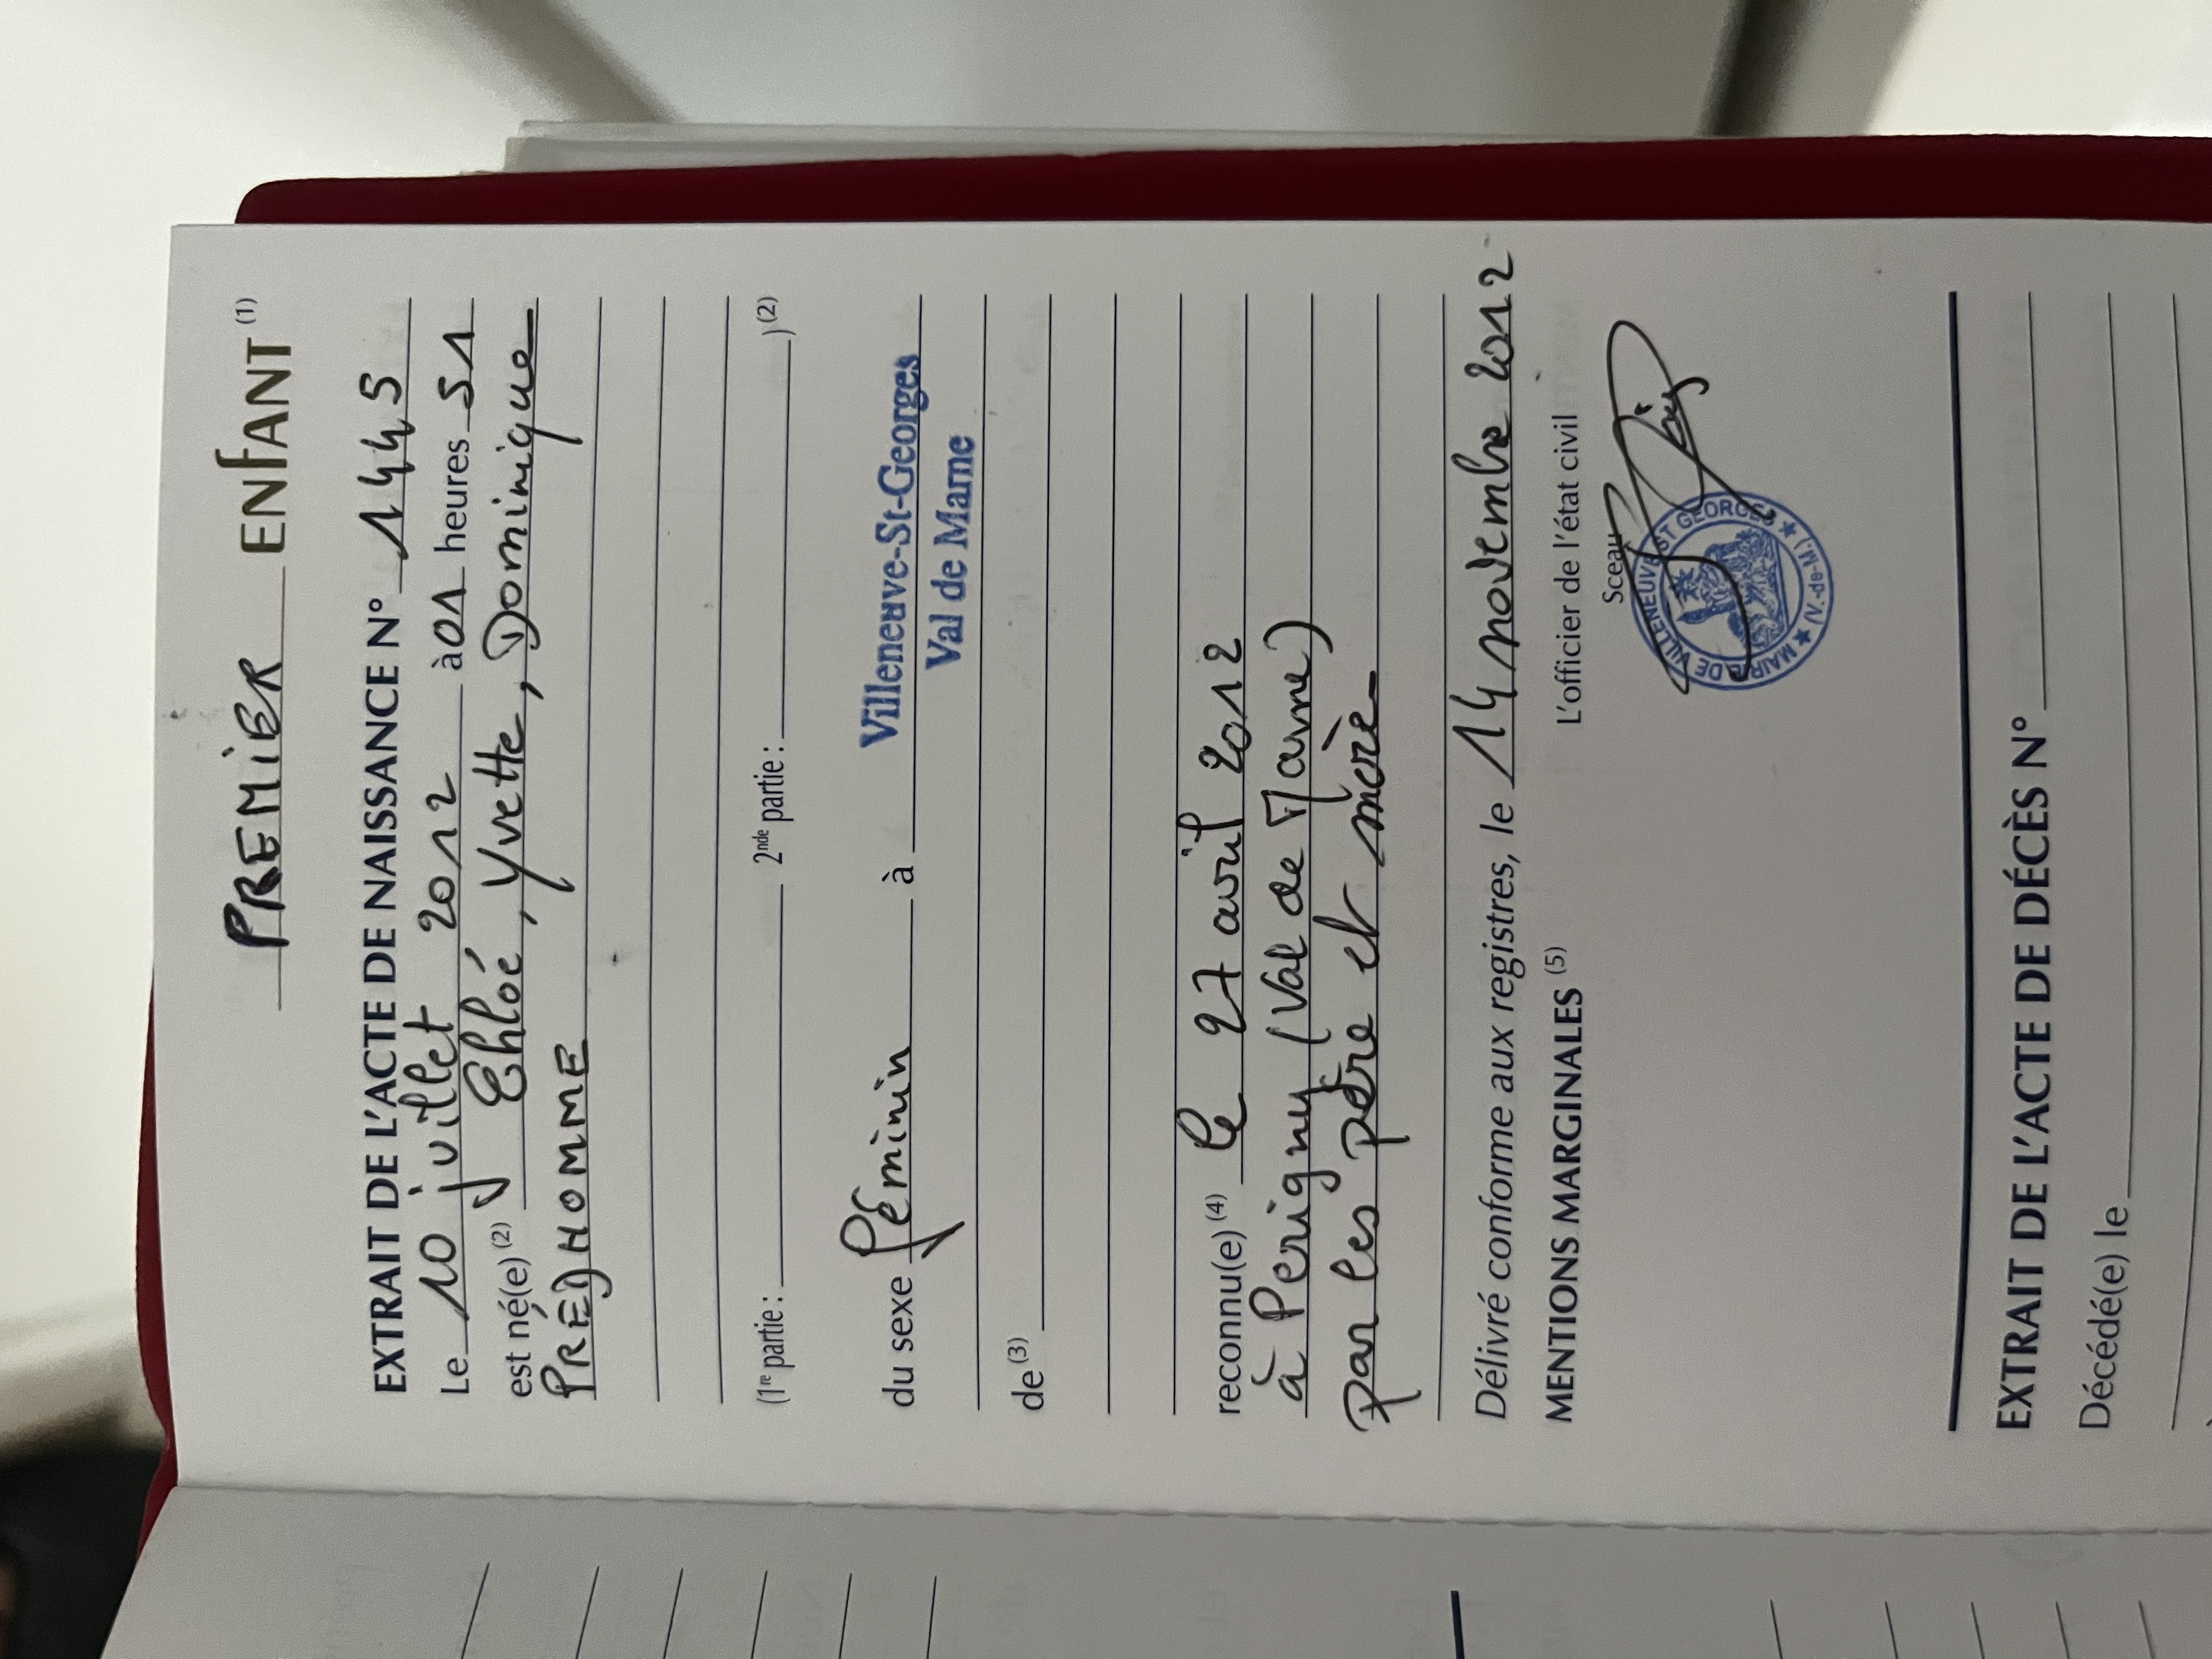 PREMIER ENFANT (1)
EXTRAIT DE L'ACTE DE NAISSANCE N° 1445
Le 10 juillet 2012 à 01 heures 51
est né(e) (2) Chloé, Yvette, Dominique
PREDHOMME
(1re partie : 2nde partie : ) (2)
du sexe féminin à Villeneuve-St-Georges
Val de Marne
de (3)
reconnu(e) (4) le 27 avril 2012
à Perigny (Val de Marne)
par les père et mère
Délivré conforme aux registres, le 14 novembre 2012
MENTIONS MARGINALES (5) L'officier de l'état civil
Sceau
MAIRIE DE VILLENEUVE ST GEORGES (V.-de-M.)
EXTRAIT DE L'ACTE DE DÉCÈS N°
Décédé(e) le